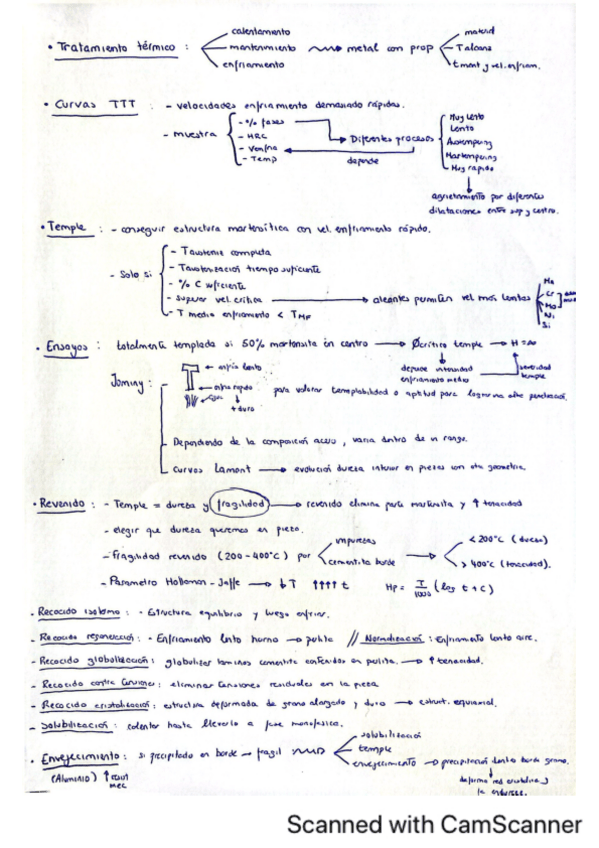 calentamiento
material
• Tratamiento térmico : mantenimiento → metal con prop
T alcanz
enfriamiento
tment y vel. enfriam.
• Curvas TTT : - velocidades enfriamiento demasiado rápidas.
- muestra
- % fases
- HRC
- Temp
Diferentes procesos
depende
Muy lento
Lento
Austempering
Martempering
Muy rapido
agrietamiento por diferentes
dilataciones entre sup y centro.
• Temple : - conseguir estructura martensítica con vel. enfriamiento rápido.
- Solo si
- T austeniz completa
- T austenización tiempo suficiente
- % C suficiente
- superar vel. crítica → aleantes permiten vel más lentas
- T medio enfriamiento < T MF
Mn
Cr
Mo
Ni
Si
• Ensayos : totalmente templada si 50% martensita en centro → Øcrítico temple → H=∞
depende intensidad
enfriamiento medio
severidad
temple
Jominy :
enfría lento
enfría rápido
+ duro
para valorar templabilidad o aptitud para lograr una alta penetración.
- Dependiendo de la composición acero, varía dentro de un rango.
- Curvas Lamont → evolución dureza interior en piezas con otra geometría.
• Revenido : - Temple = dureza y fragilidad → revenido elimina parte martensita y ↑ tenacidad
- elegir que dureza queremos en pieza.
- Fragilidad revenido (200-400°C) por
impurezas
cementita borde
< 200°C (dureza)
> 400°C (tenacidad).
- Parametro Hollomon-Jaffe → ↓T ↑↑↑↑ t Hp = T/1000 (log t + C)
- Recocido isotermo : - Estructura equilibrio y luego enfriar.
- Recocido regeneración : - Enfriamiento lento horno → perlita // Normalización : enfriamiento lento aire.
- Recocido globulización : globulizar laminas cementita contenidas en perlita. → ↑ tenacidad.
- Recocido contra tensiones : eliminar tensiones residuales en la pieza
- Recocido cristalización : estructura deformada de grano alargado y duro → estruct. equiaxial.
- Solubilización : calentar hasta llevarlo a fase monofásica.
• Envejecimiento : si precipitado en borde → fragil
(Aluminio)
mec
solubilización
temple
envejecimiento → precipitación lenta borde grano.
deforma red cristalina y
la endurece.
Scanned with CamScanner